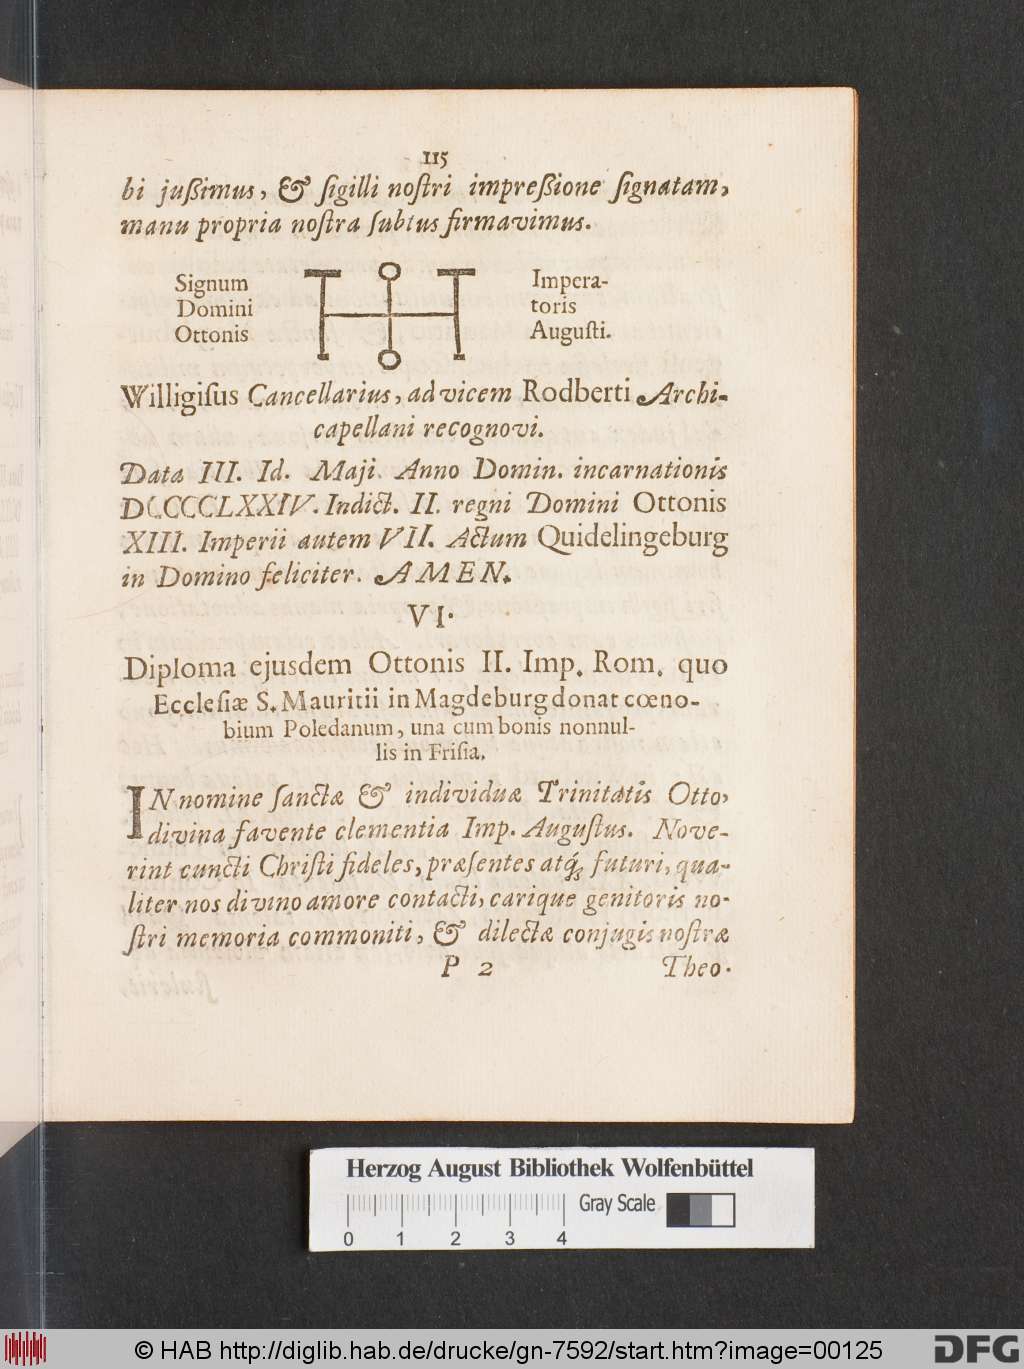 115
bi jußimus, & ſigilli noſtri impreßione ſignatam,
manu propria noſtra ſubtus firmavimus.
Signum Impera-
Domini toris
Ottonis Auguſti.
Willigiſus Cancellarius, ad vicem Rodberti Archi-
capellani recognovi.
Data III. Id. Maji. Anno Domin. incarnationis
DCCCCLXXIV. Indict. II. regni Domini Ottonis
XIII. Imperii autem VII. Actum Quidelingeburg
in Domino feliciter. AMEN.
VI.
Diploma ejusdem Ottonis II. Imp. Rom. quo
Eccleſiæ S. Mauritii in Magdeburg donat cœno-
bium Poledanum, una cum bonis nonnul-
lis in Friſia.
IN nomine ſanctæ & individuæ Trinitatis Otto,
divina favente clementia Imp. Auguſtus. Nove-
rint cuncti Chriſti fideles, præſentes atq́; futuri, qua-
liter nos divino amore contacti, carique genitoris no-
ſtri memoria commoniti, & dilectæ conjugis noſtræ
P 2 Theo-
Herzog August Bibliothek Wolfenbüttel
Gray Scale
0 1 2 3 4
© HAB http://diglib.hab.de/drucke/gn-7592/start.htm?image=00125
DFG